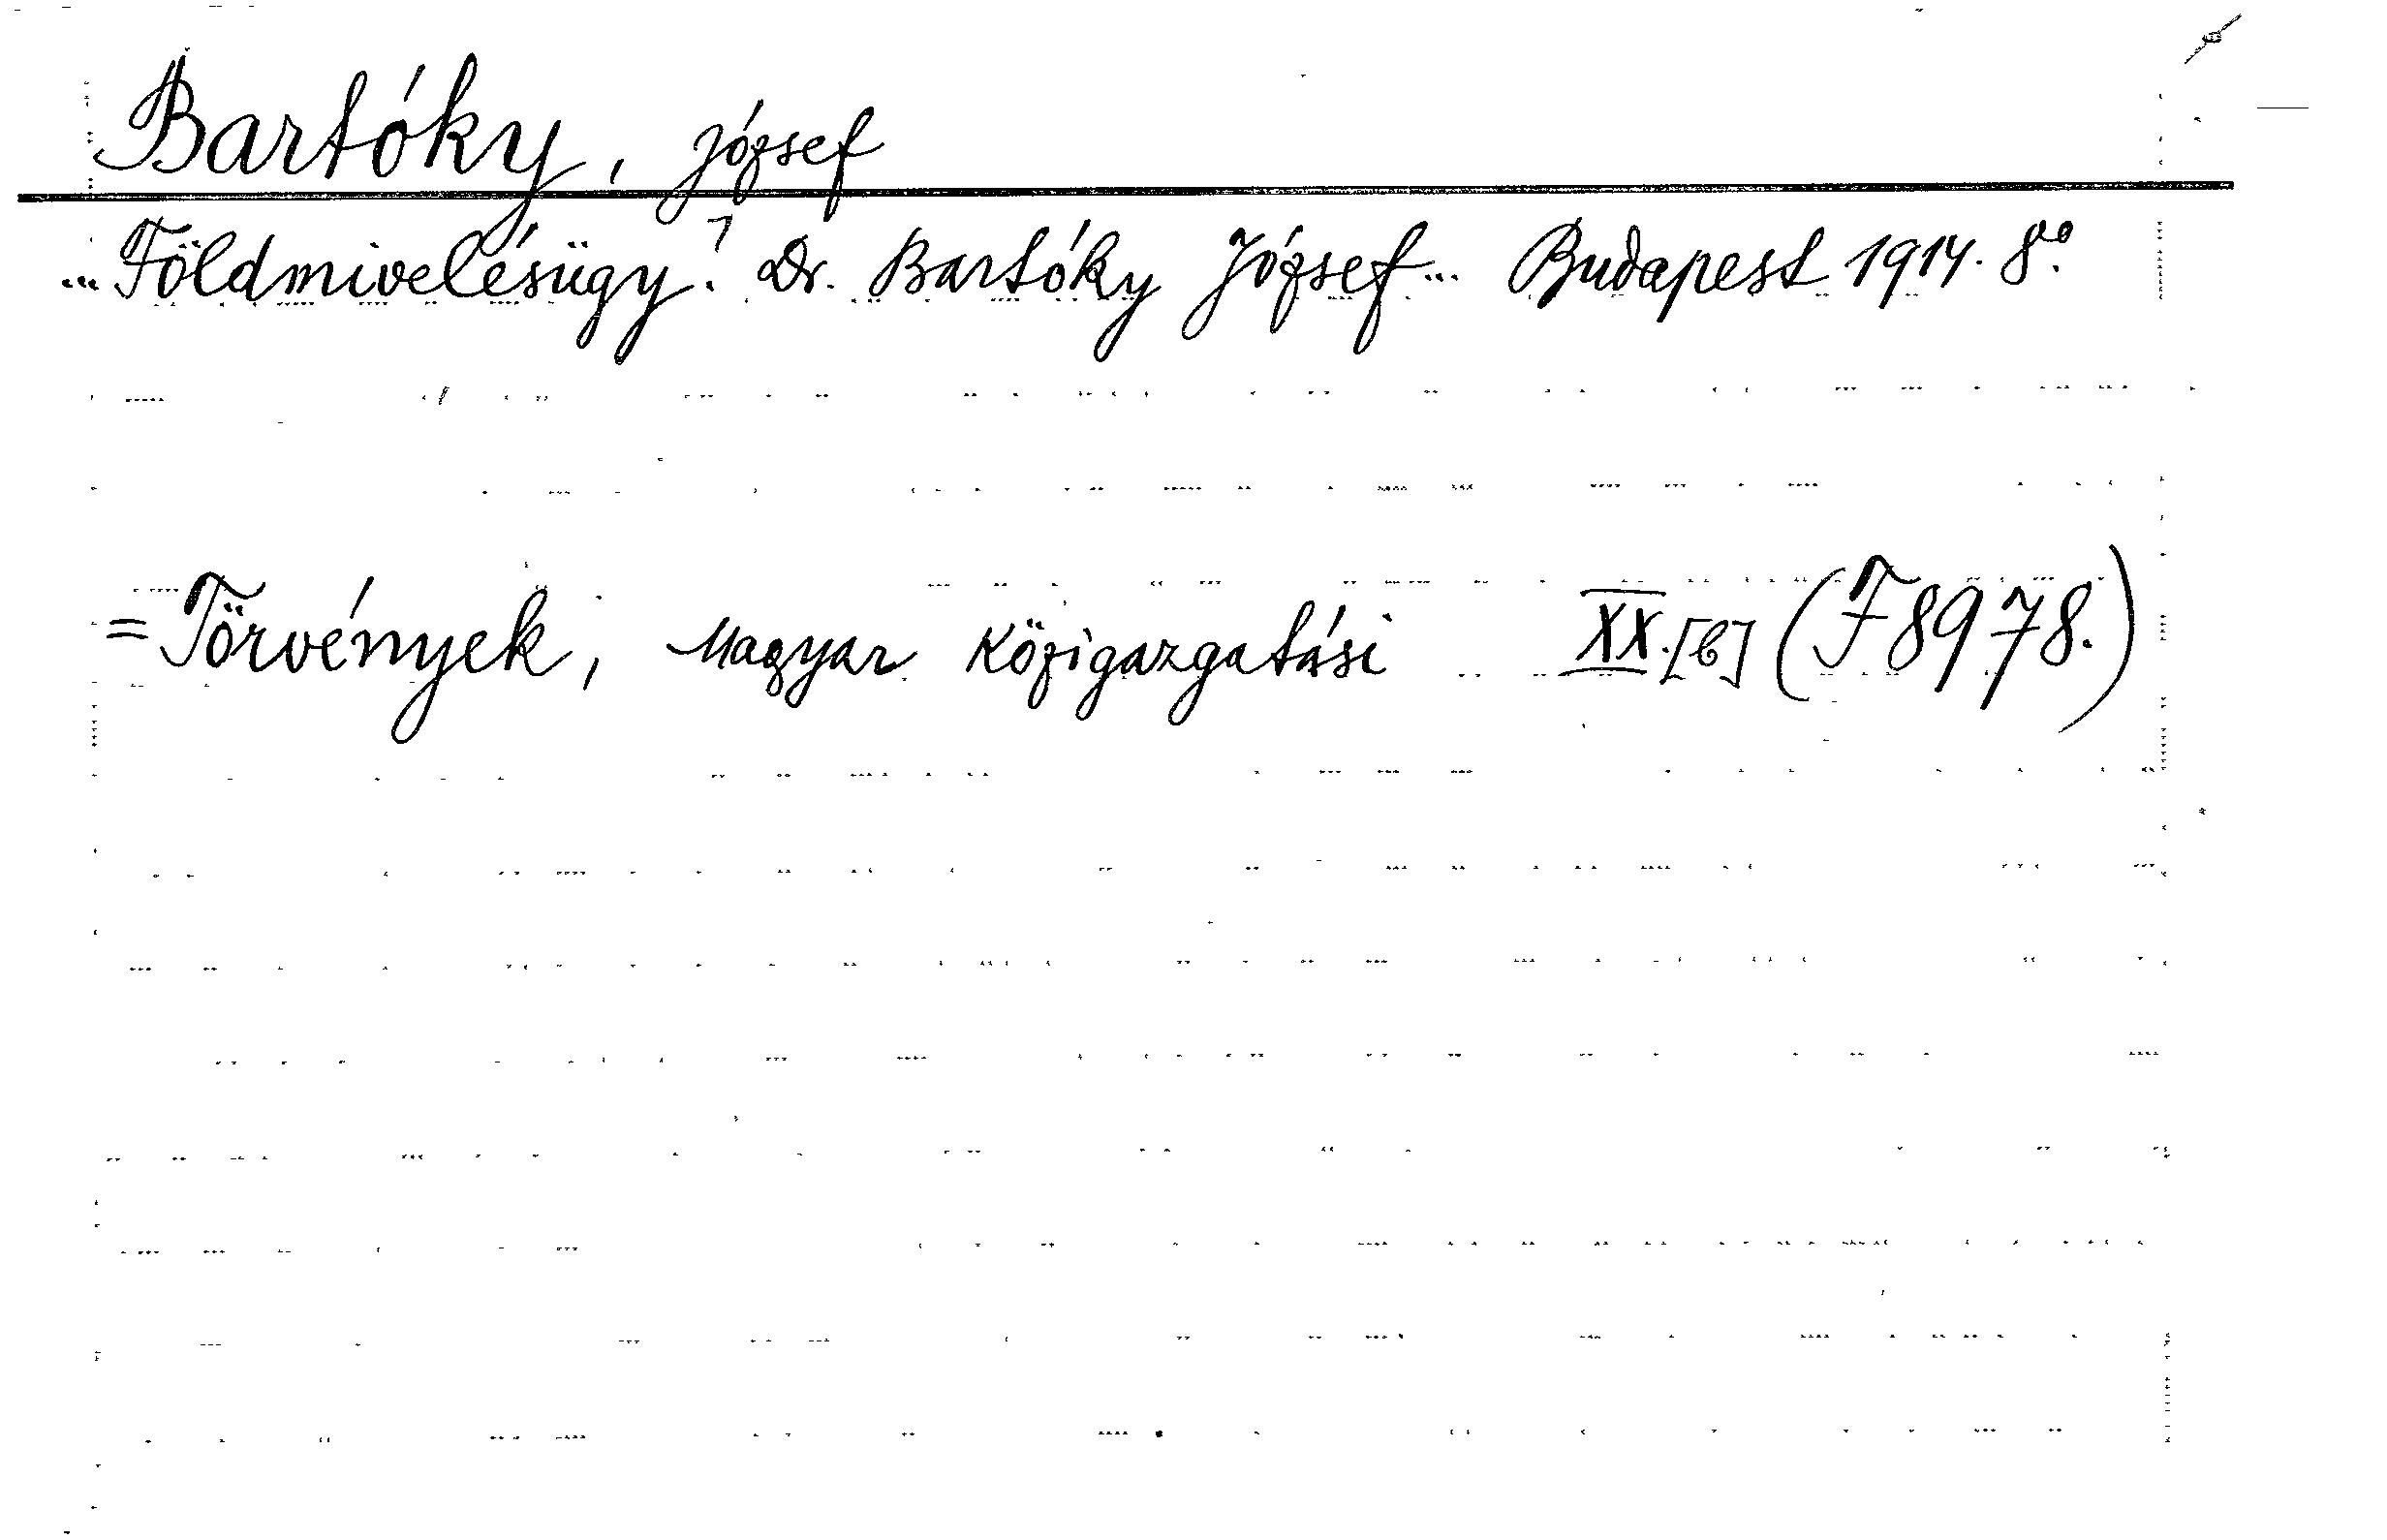 Bartóky, József
... Földmivelésügy. Dr. Bartóky József... Budapest 1914. 8º.
= Törvények, Magyar közigazgatási XX.[b] (F 8978.)